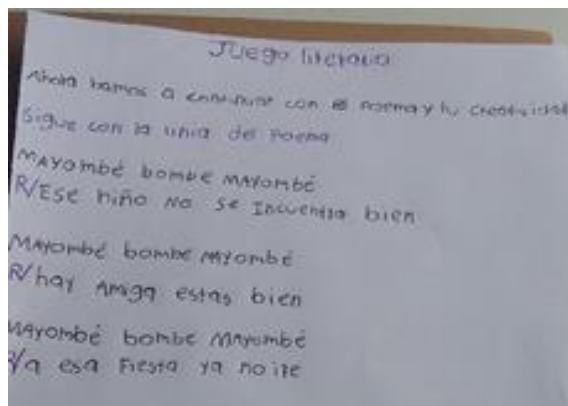 Juego literario
Ahora bamos a continuar con el poema y tu creatividad
Sigue con la linia del Poema
MAYOmbé bombe MAYombé
R/Ese niño no se Incuentra bien
MAYombé bombe MAYombé
R/hay Amiga estas bien
MAYombé bombe MAYombé
R/a esa Fiesta ya no ire